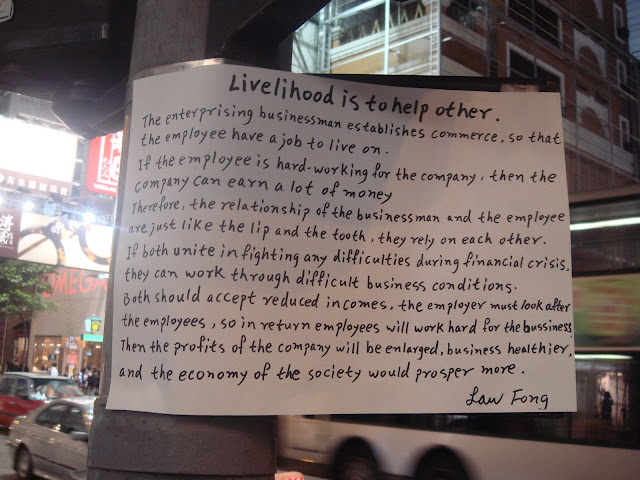 Livelihood is to help other.
The enterprising businessman establishes commerce, so that
the employee have a job to live on.
If the employee is hard-working for the company, then the
company can earn a lot of money
Therefore, the relationship of the businessman and the employee
are just like the lip and the tooth, they rely on each other.
If both unite in fighting any difficulties during financial crisis,
they can work through difficult business conditions.
Both should accept reduced incomes, the employer must look after
the employees, so in return employees will work hard for the bussiness
Then the profits of the company will be enlarged, business healthier,
and the economy of the society would prosper more.
Law Fong
OMEGA